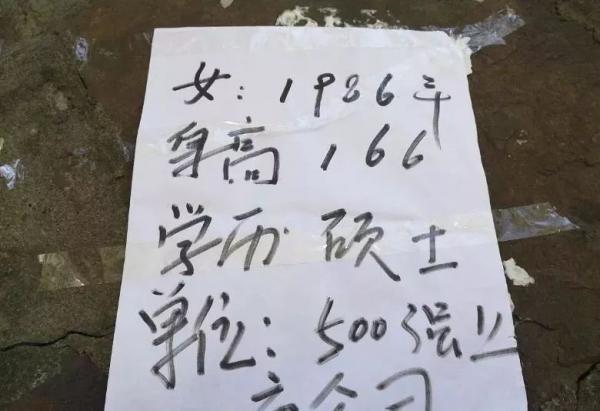 女：1986年
身高 166
学历 硕士
单位：500强上
公司